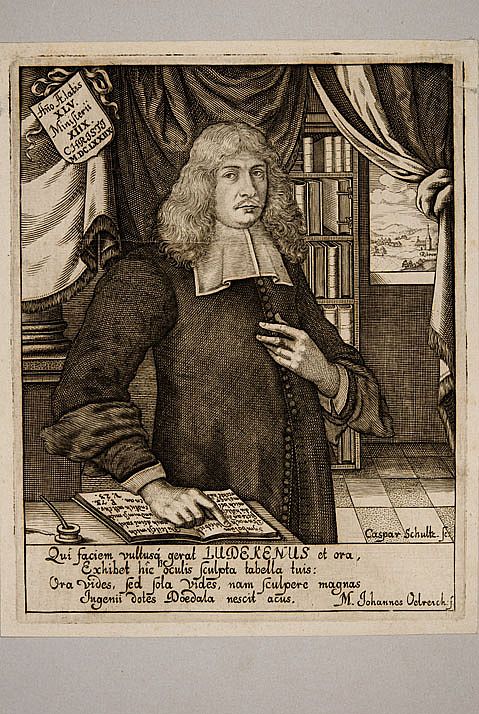 Año Ætatis
XLV.
Ministerii
XIIX.
MDCLXXXIX
Qui faciem vultusq̃ gerat LUDEKENUS et ora,
Exhibet hîc oculis sculpta tabella tuis:
Ora vides, sed sola vides, nam sculpere magnas
Ingenii dotes Dœdala nescit acus.
M. Johannes
Caspar Schultz. sc.